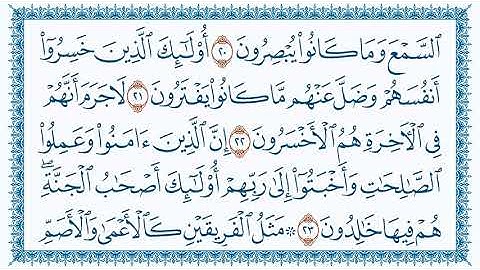 ٱلسَّمْعَ وَمَا كَانُوا۟ يُبْصِرُونَ ٢٠ أُو۟لَٰٓئِكَ ٱلَّذِينَ خَسِرُوٓا۟
أَنفُسَهُمْ وَضَلَّ عَنْهُم مَّا كَانُوا۟ يَفْتَرُونَ ٢١ لَا جَرَمَ أَنَّهُمْ
فِى ٱلْءَاخِرَةِ هُمُ ٱلْأَخْسَرُونَ ٢٢ إِنَّ ٱلَّذِينَ ءَامَنُوا۟ وَعَمِلُوا۟
ٱلصَّٰلِحَٰتِ وَأَخْبَتُوٓا۟ إِلَىٰ رَبِّهِمْ أُو۟لَٰٓئِكَ أَصْحَٰبُ ٱلْجَنَّةِ ۖ
هُمْ فِيهَا خَٰلِدُونَ ٢٣ ۞ مَثَلُ ٱلْفَرِيقَيْنِ كَٱلْأَعْمَىٰ وَٱلْأَصَمِّ